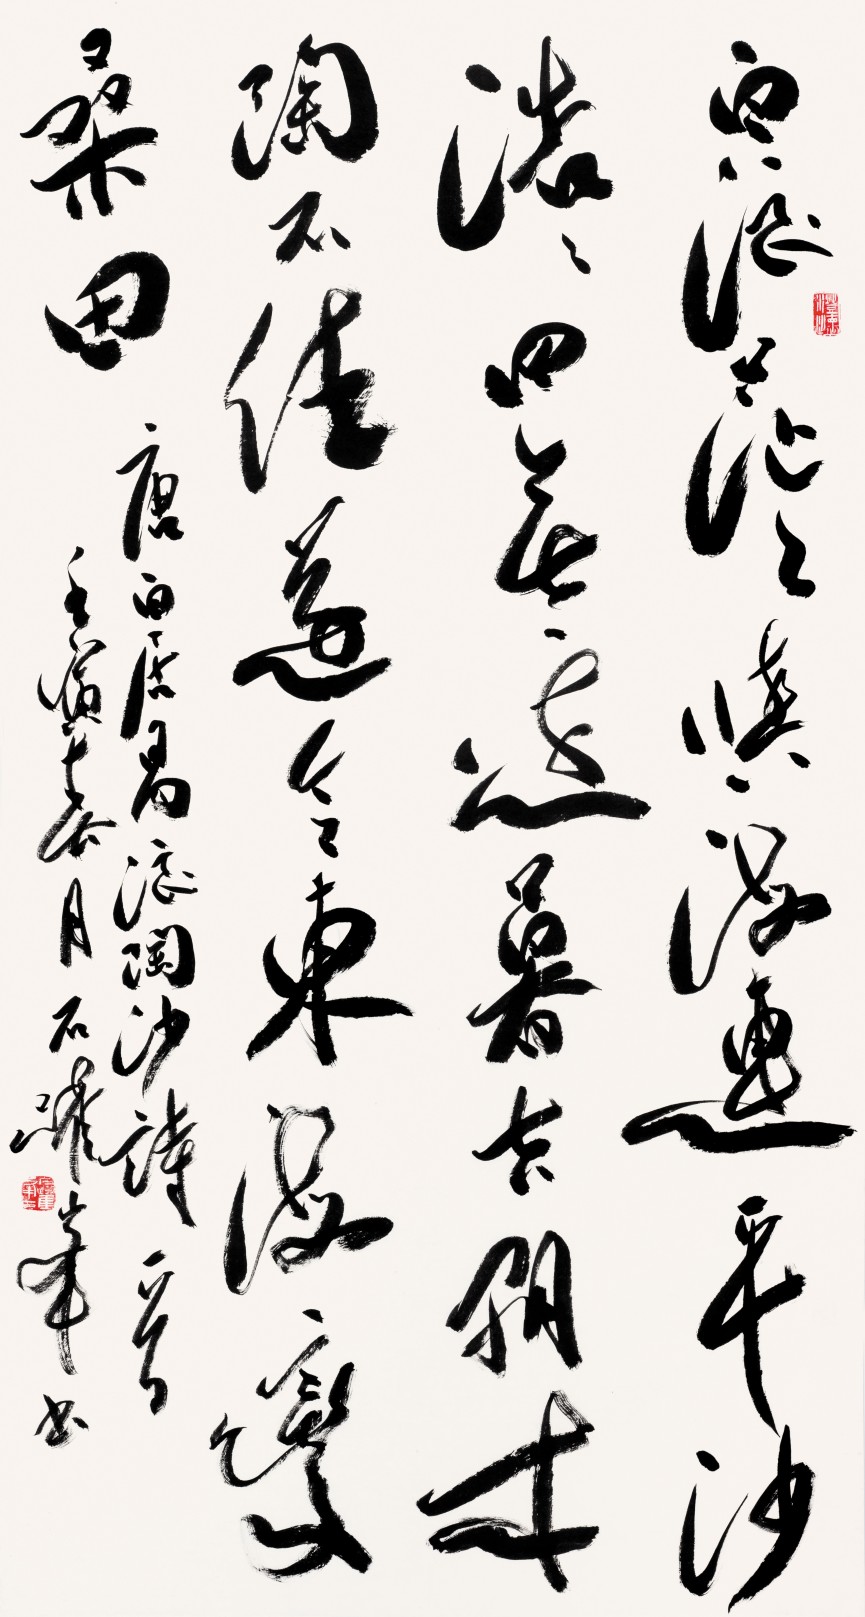 白浪茫々與海連平沙
浩々四無邊暮去朝來
淘不住遂令東海變
桑田
唐白居易浪淘沙詩一首
壬寅春月石躍書